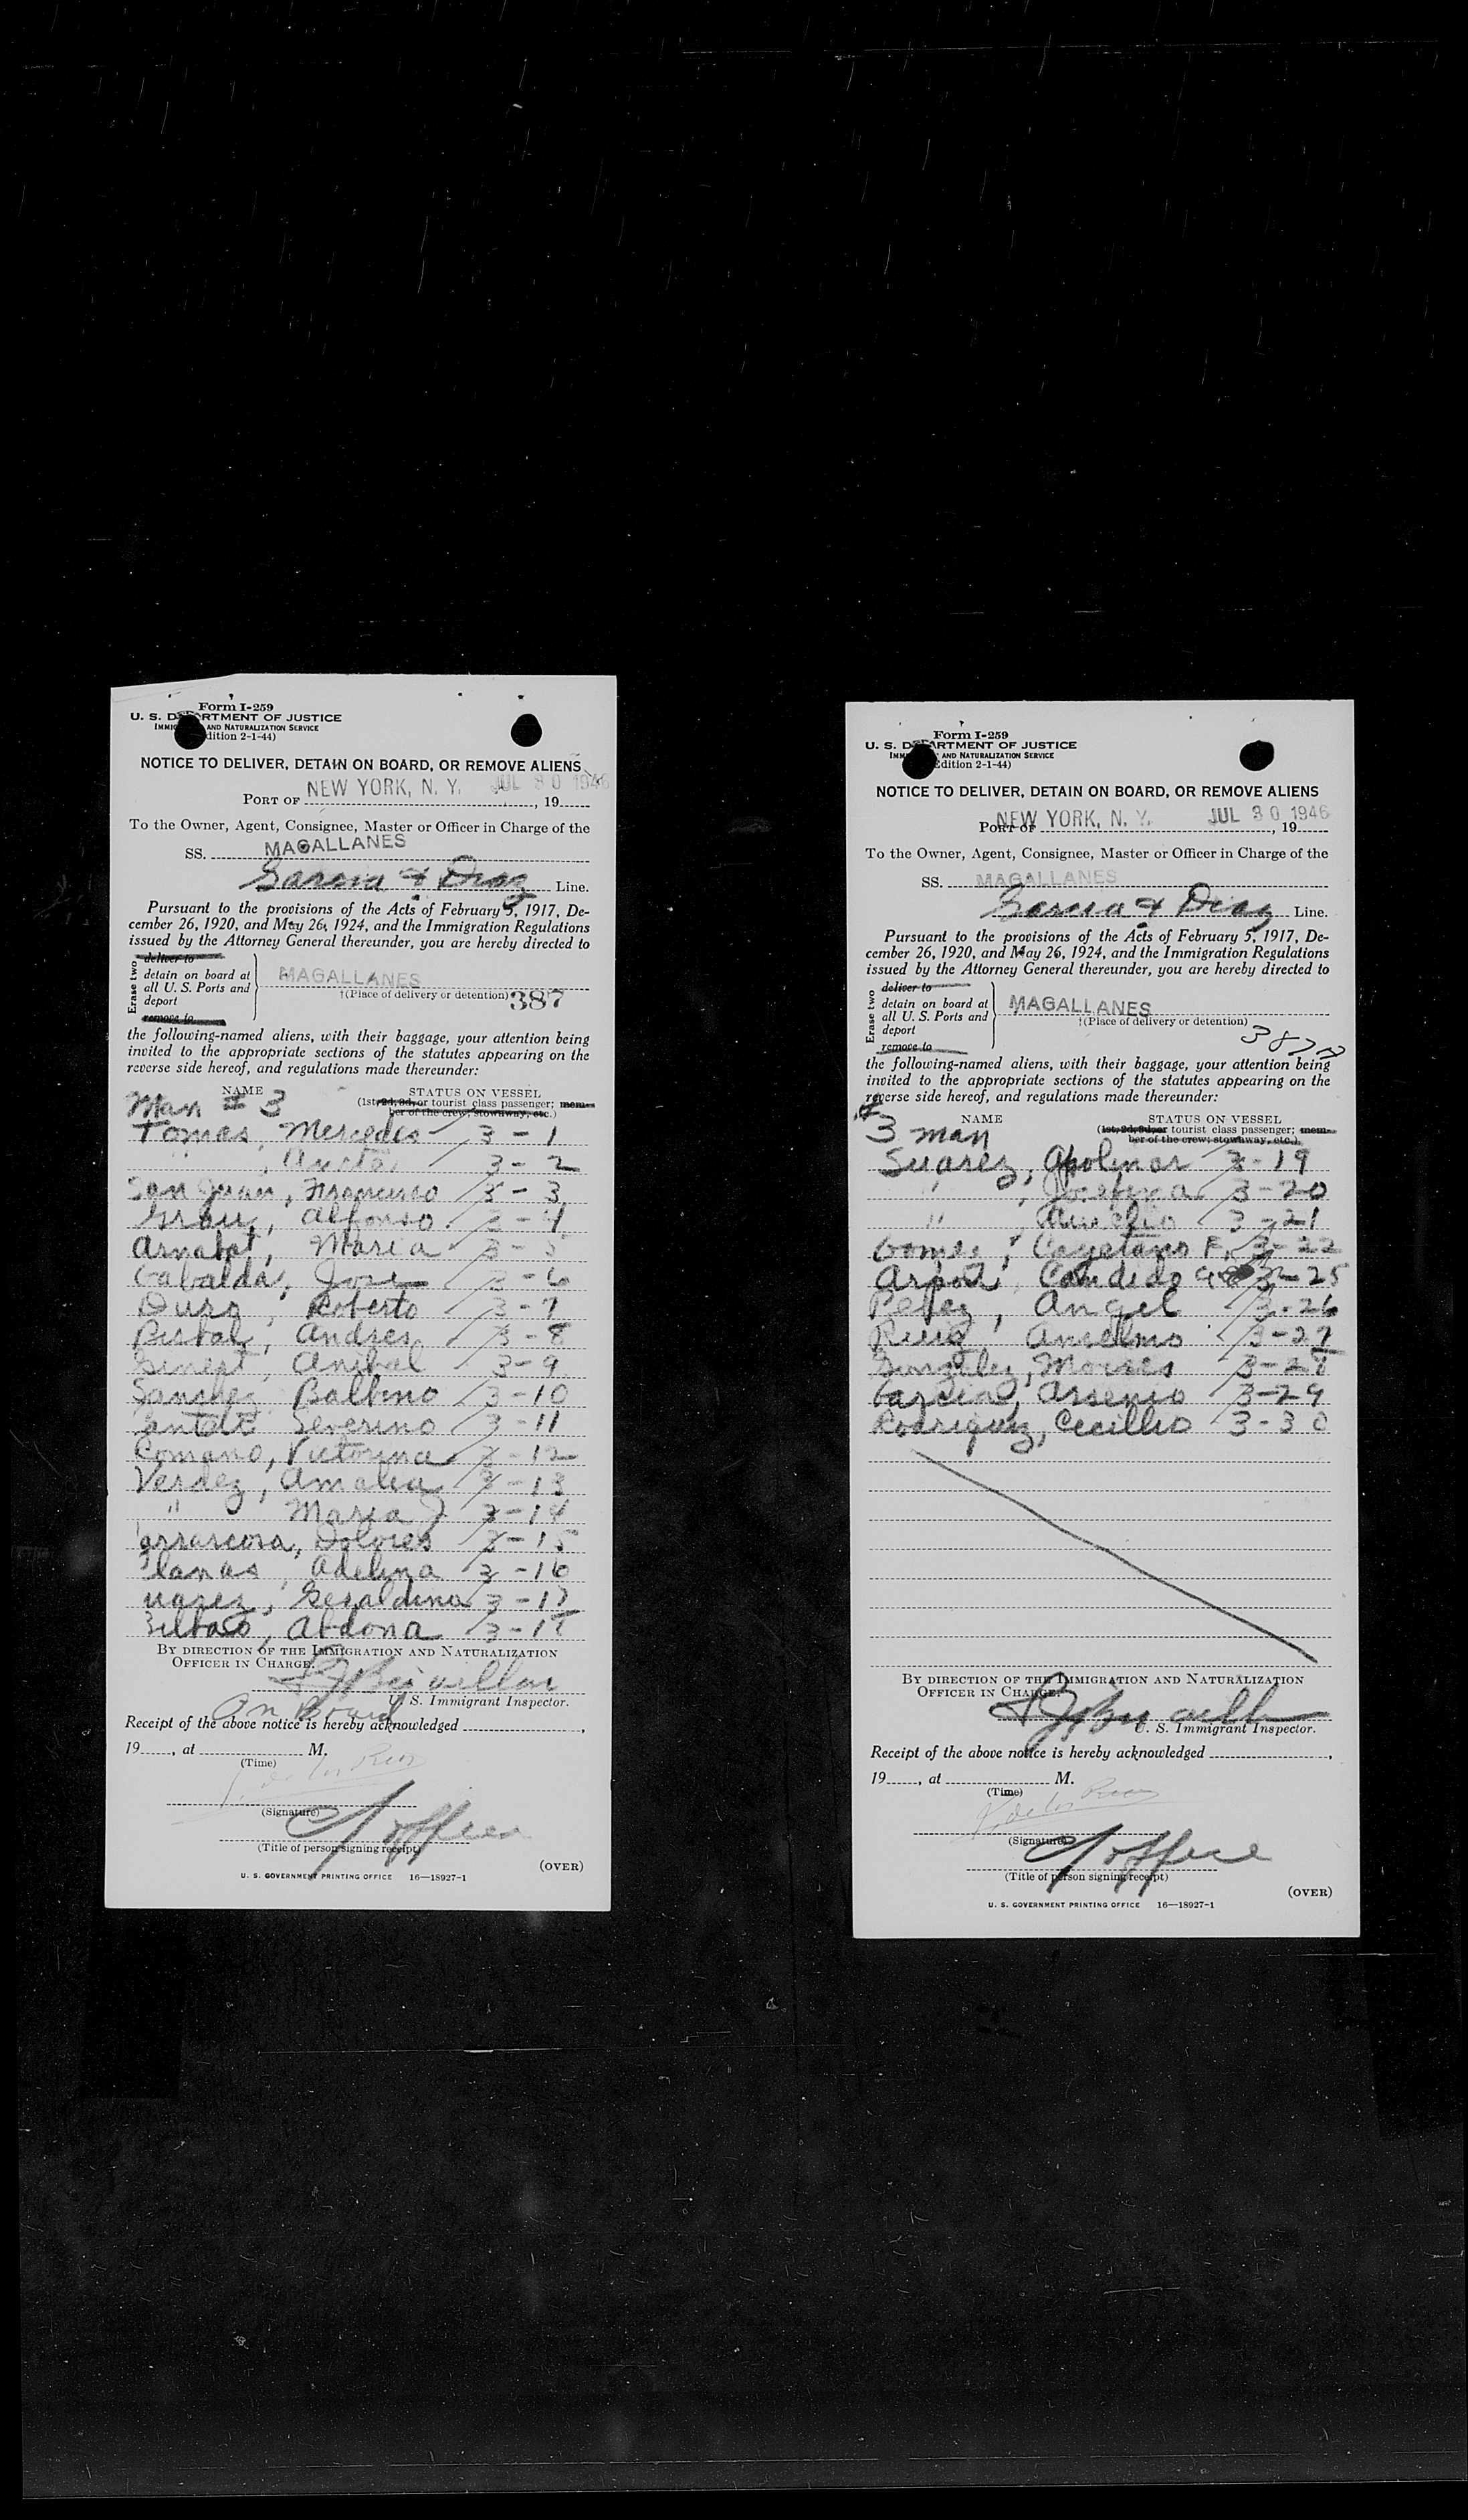 Form I-259
U. S. DEPARTMENT OF JUSTICE
IMMIGRATION AND NATURALIZATION SERVICE
(Edition 2-1-44)
NOTICE TO DELIVER, DETAIN ON BOARD, OR REMOVE ALIENS
PORT OF NEW YORK, N. Y. JUL 30 1946, 19
To the Owner, Agent, Consignee, Master or Officer in Charge of the
SS. MAGALLANES
Garcia & Diaz Line.
Pursuant to the provisions of the Acts of February 5, 1917, De-
cember 26, 1920, and May 26, 1924, and the Immigration Regulations
issued by the Attorney General thereunder, you are hereby directed to
Erase two
deliver to
detain on board at
all U. S. Ports and
deport
remove to
MAGALLANES
†(Place of delivery or detention) 387
the following-named aliens, with their baggage, your attention being
invited to the appropriate sections of the statutes appearing on the
reverse side hereof, and regulations made thereunder:
NAME STATUS ON VESSEL
(1st, 2d, 3d, or tourist class passenger; mem-
ber of the crew; stowaway, etc.)
Man # 3
Tomas, Mercedes 3-1
" , 3-2
San Juan, Francisco 3-3
Grau, Alfonso 3-4
Arnabat, Maria 3-5
Gabalda, Jose 3-6
Duro, Roberto 3-7
Andres 3-8
Anibal 3-9
Sanchez Balbino 3-10
Severino 3-11
Comano, Victorina 3-12
Verdez, Amalia 3-13
" Maria J. 3-14
Dolores 3-15
Adelina 3-16
uarez, Geraldina 3-17
Bilbao, Abdona 3-18
BY DIRECTION OF THE IMMIGRATION AND NATURALIZATION
OFFICER IN CHARGE.
U. S. Immigrant Inspector.
On Board
Receipt of the above notice is hereby acknowledged ,
19 , at M.
(Time)
de los Rios
(Signature)
(Title of person signing receipt)
(OVER)
U. S. GOVERNMENT PRINTING OFFICE 16—18927-1
Form I-259
U. S. DEPARTMENT OF JUSTICE
IMMIGRATION AND NATURALIZATION SERVICE
(Edition 2-1-44)
NOTICE TO DELIVER, DETAIN ON BOARD, OR REMOVE ALIENS
PORT OF NEW YORK, N. Y. JUL 30 1946, 19
To the Owner, Agent, Consignee, Master or Officer in Charge of the
SS. MAGALLANES
Garcia & Diaz Line.
Pursuant to the provisions of the Acts of February 5, 1917, De-
cember 26, 1920, and May 26, 1924, and the Immigration Regulations
issued by the Attorney General thereunder, you are hereby directed to
Erase two
deliver to
detain on board at
all U. S. Ports and
deport
remove to
MAGALLANES
†(Place of delivery or detention)
the following-named aliens, with their baggage, your attention being
invited to the appropriate sections of the statutes appearing on the
reverse side hereof, and regulations made thereunder:
NAME STATUS ON VESSEL
(1st, 2d, 3d, or tourist class passenger; mem-
ber of the crew; stowaway, etc.)
# 3 man
Suarez, Apolinar 3-19
" , Josefina 3-20
" Aurelio 3-21
Gomez, Cayetano F. 3-22
Candido 3-25
Perez, Angel 3-26
Ruiz Anselmo 3-27
Gonzalez, Moises 3-28
Garcia, Arsenio 3-29
Rodriguez, Cecilio 3-30
BY DIRECTION OF THE IMMIGRATION AND NATURALIZATION
OFFICER IN CHARGE.
U. S. Immigrant Inspector.
Receipt of the above notice is hereby acknowledged ,
19 , at M.
(Time)
de los Rios
(Signature)
(Title of person signing receipt)
(OVER)
U. S. GOVERNMENT PRINTING OFFICE 16—18927-1